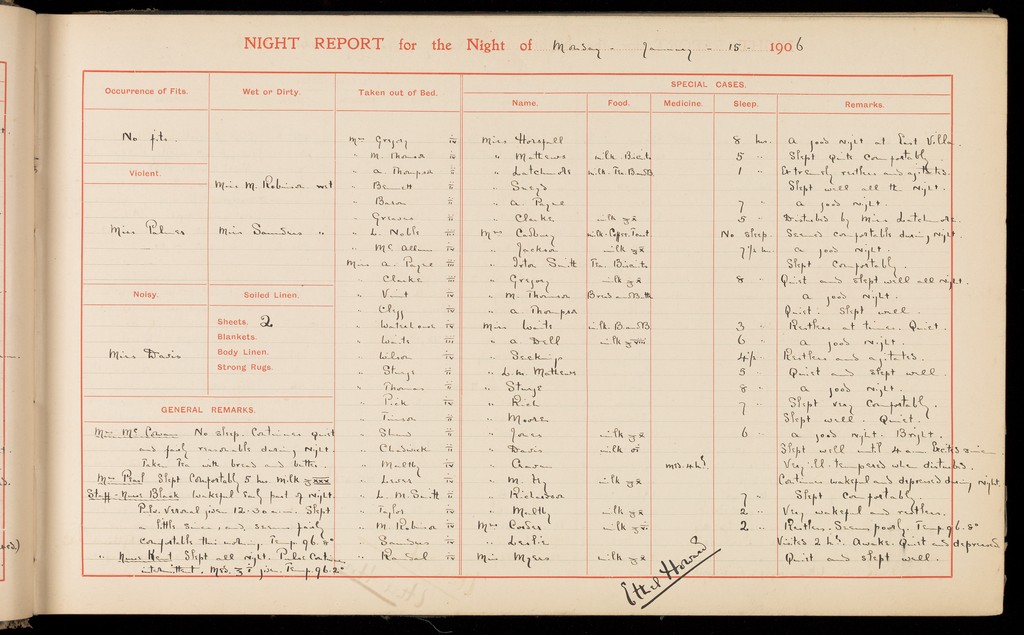 NIGHT REPORT for the Night of Monday - January - 15 - 1906
SPECIAL CASES.
Occurrence of Fits. Wet or Dirty. Taken out of Bed. Name. Food. Medicine. Sleep. Remarks.
No fits
Violent.
Miss Palmer
Noisy.
Miss Davis
Miss M. Robinson wet
Miss Saunders "
Soiled Linen.
Sheets. 2
Blankets.
Body Linen.
Strong Rugs.
GENERAL REMARKS.
Mrs McCowan No sleep. Continues quiet
and fairly reasonable during night.
Take Tea with bread and butter.
Mrs Pearl Slept comfortably 5 hrs. Milk
Staff-Nurse Black Wakeful early part of night.
Pulv. Veronal given 12.30 a.m. Slept
a little since, and seems fairly
comfortable this morning, Temp. 96.8°
" Nurse Kent Slept all night. Pulse Continues
intermittent. Med. given. Temp. 96.2°
Mrs Gregory iv
" M. Thomson iv
" A. Thompson iv
" Bennett ii
" Bacon ii
" Greaves ii
" L. Noble iii
" McCallum iv
Miss A. Payne iii
" Clarke iii
" Vint iv
" Clegg iv
" Waterhouse iv
" Waite iii
" Wilson iv
" Sturge ii
" Thomas ii
" Pick iv
" ii
" Shaw ii
" Chadwick ii
" Maltby iv
" Lewer ii
" L. M. Smith ii
" Taylor iv
" M. Robinson iv
" Saunders iv
" Randal iv
Miss Horsfall 8 hrs. A good night at East Villa.
" Mathews milk Biscuits 5 " Slept quite comfortably.
" Latchmore milk. Tea. B and B 1 " Extremely restless and agitated.
" Slept well all the night.
" A. Payne 7 " A good night.
" Clarke milk 5 " Disturbed by Miss Latchmore.
Mrs Cadbury milk. Coffee. Toast. No sleep. Seemed comfortable during night.
" Jackson milk 7½ hrs. A good night.
" Ixton Smith Tea. Biscuits Slept comfortably.
" Gregory milk 8 " Quiet and slept well all night.
" M. Thomson Bread and Butter A good night.
" A. Thompson Quiet. Slept well.
Miss Waite milk. B and B 3 " Restless at times. Quiet.
" A. Dell milk 6 " A good night.
" 4½ Restless and agitated.
" L. M. Mathews 5 " Quiet and slept well.
" Sturge 8 " A good night.
" Rich 7 " Slept very comfortably.
" Moore Slept well. Quiet.
" Jones milk 6 " A good night. Bright.
" Davis milk Slept well until 4 a.m. Excited since.
" Med. 4 hrs. Very ill-tempered when disturbed.
" M. Fry milk Continues wakeful and depressed during night.
" Richardson 7 " Slept comfortably.
" Maltby milk 2 " Very wakeful and restless.
Mrs Corder milk 2 " Restless. Seems poorly. Temp. 96.8°
" Leslie Visited 2 hrs. Awake. Quiet and depressed.
Miss Myers milk Quiet and slept well.
Ethel Howard